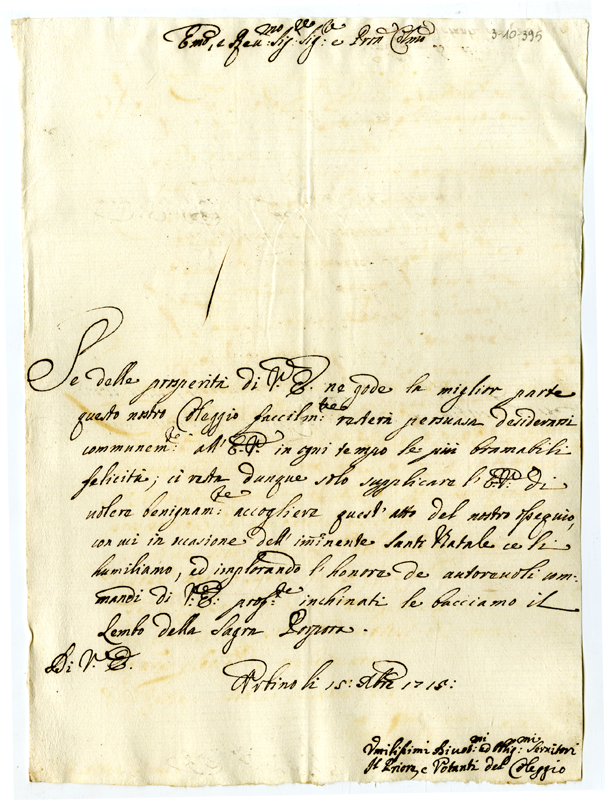 Em̃o, e Reu:mo Sig:re Sig:re e Pron Colmo
3-10-395
Se delle prosperità di V:a E. ne gode la miglior parte
questo nostro Colleggio faccilm:te resterà persuasa desiderarsi
communem:te all'E.V: in ogni tempo le più bramabili
felicità; ci resta dunque solo supplicare l'E.V: di
uolere benignam:te accogliere quest'atto del nostro ossequio,
con cui in occasione dell'im̃inente Santo Natale ce li
humiliamo, ed implorando l'honore de autoreuoli com-
mandi di V:a E. prof:te inchinati le bacciamo il
Lembo della Sagra Porpora.
Di V:a E.
Vrbino li 15: Xbre 1715:
Vmilissimi Diuot:mi ed Obbg:mi Seruitori
Il Priore, e Votanti del Colleggio